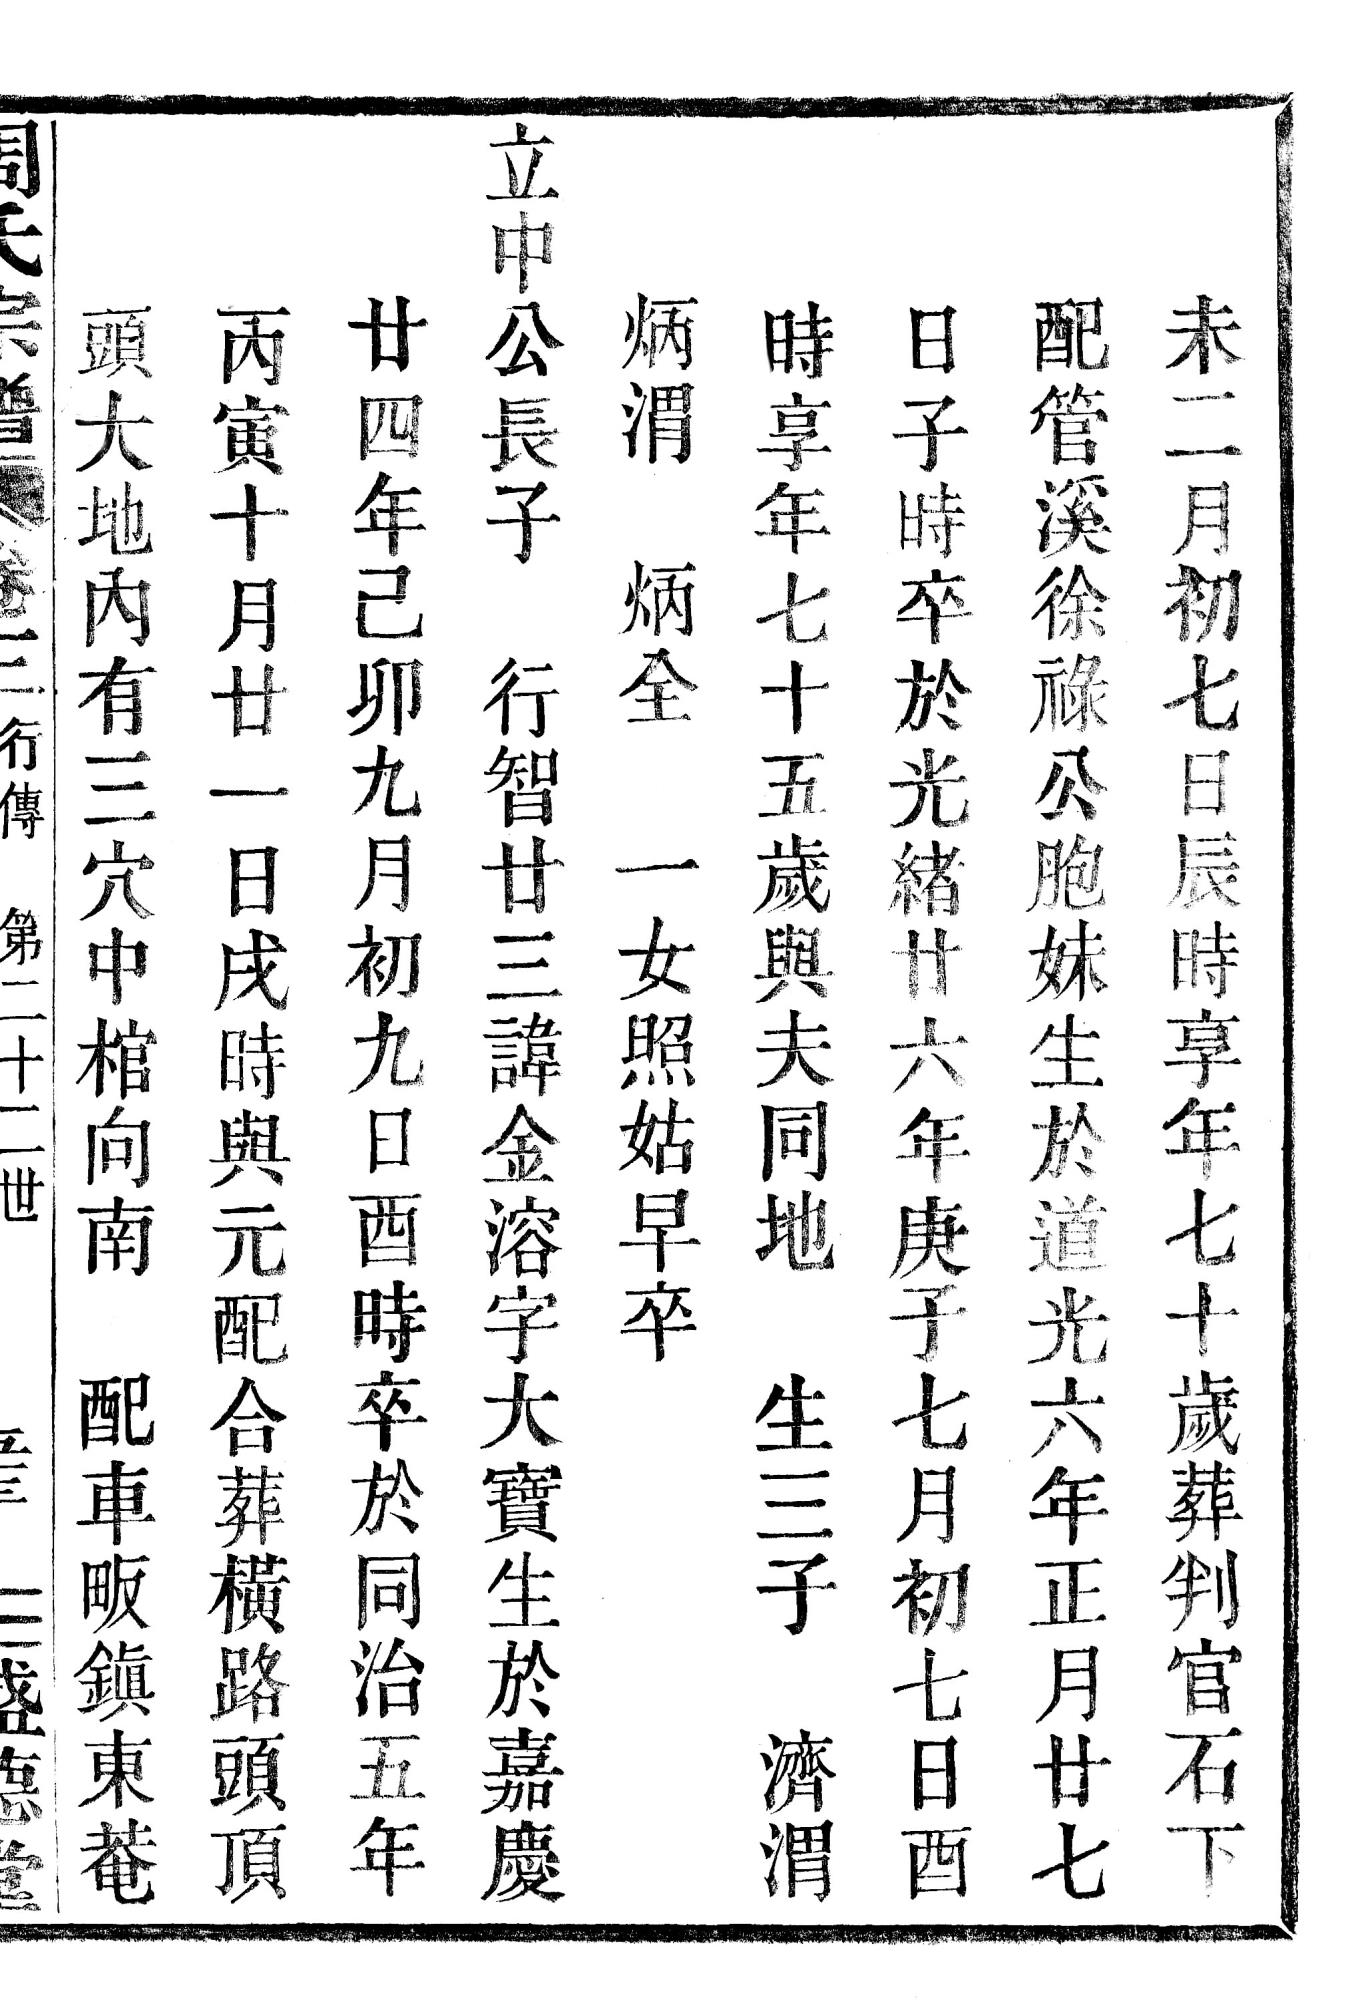 未二月初七日辰時享年七十歲葬判官石下
配管溪徐祿公胞妹生於道光六年正月廿七
日子時卒於光緒廿六年庚子七月初七日酉
時享年七十五歲與夫同地　生三子　濟渭
炳渭　炳全　一女照姑早卒
立中公長子　行智廿三諱金溶字大寶生於嘉慶
廿四年己卯九月初九日酉時卒於同治五年
丙寅十月廿一日戌時與元配合葬橫路頭頂
頭大地內有三穴中棺向南　配車畈鎭東菴
周氏宗譜　卷二行傳　第二十二世　盛德堂